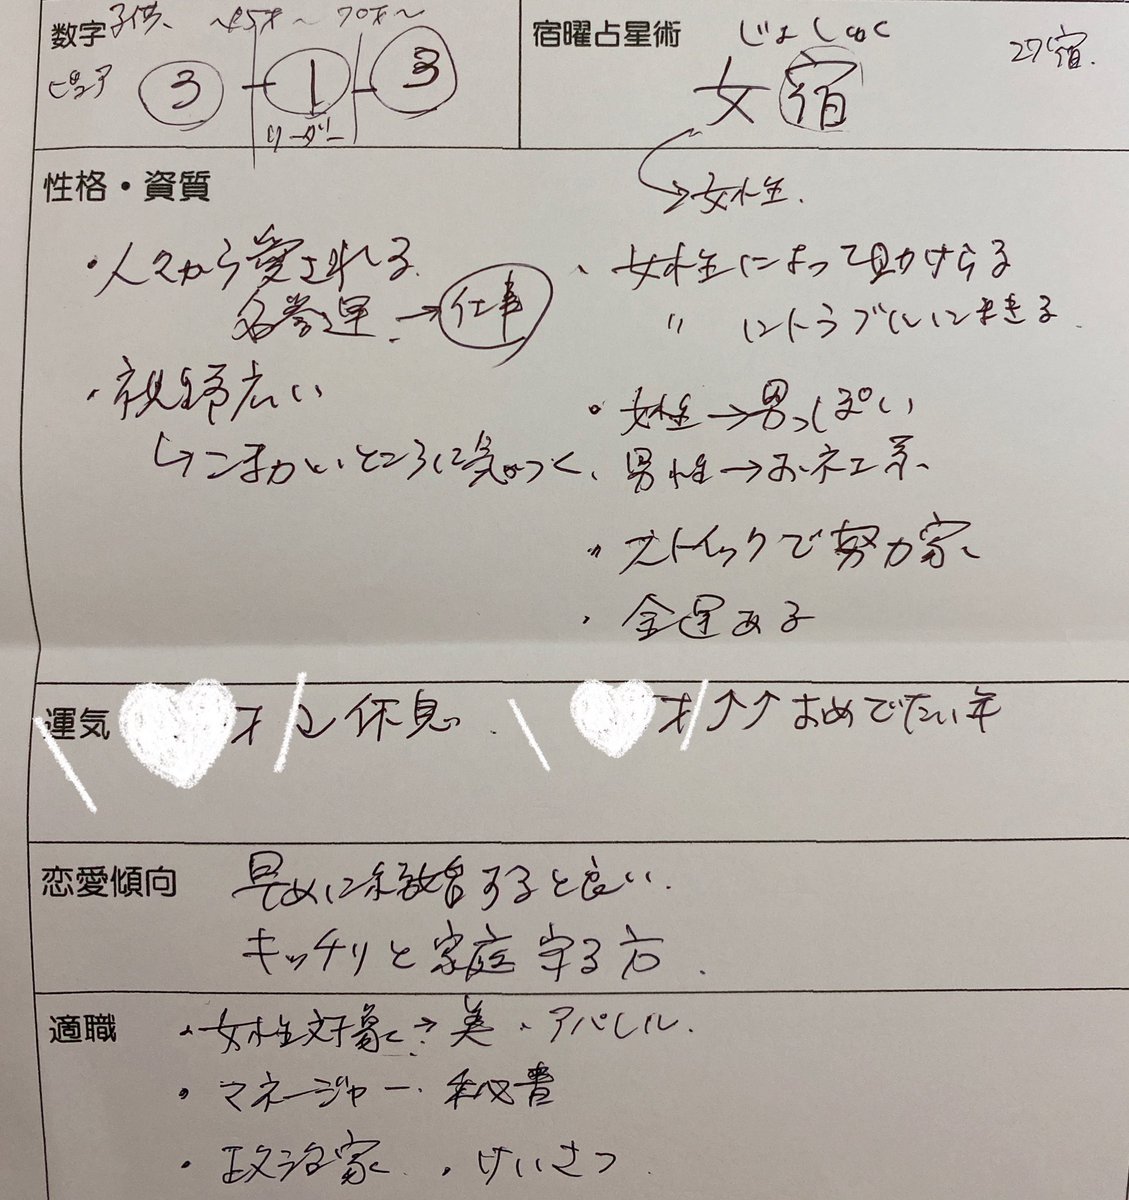 数字 子供、 〜45才 〜 70才〜
ピュア ③ ① ③
リーダー
宿曜占星術 じょしゅく
女宿 27宿.
→女性.
性格・資質
・人々から愛される
名誉運 → 仕事
・視野広い
↳こまかいところに気がつく、
、女性によって助けらる
〃 にトラブルにまきる
・女性→男っぽい
男性→お、ネエ系、
・ストイックで努力家
・金運ある
運気 才↓休息. 才↑↑おめでたい年
恋愛傾向 早めに結婚すると良い.
キッチリと家庭守る方.
適職 ・女性対象→美、アパレル.
・マネージャー・秘書
・政治家 ・けいさつ